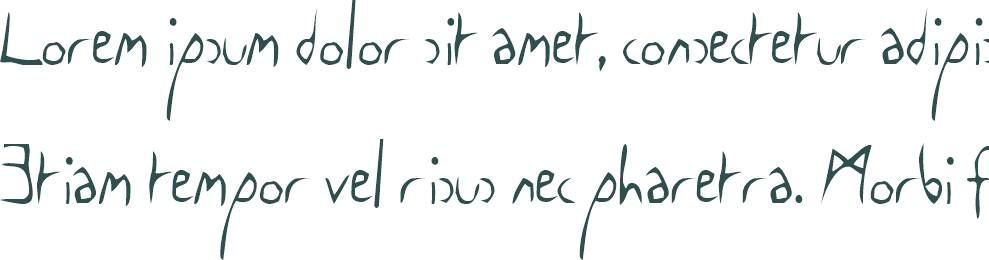 Lorem ipsum dolor sit amet, consectetur adipis
Etiam tempor vel risus nec pharetra. Morbi f